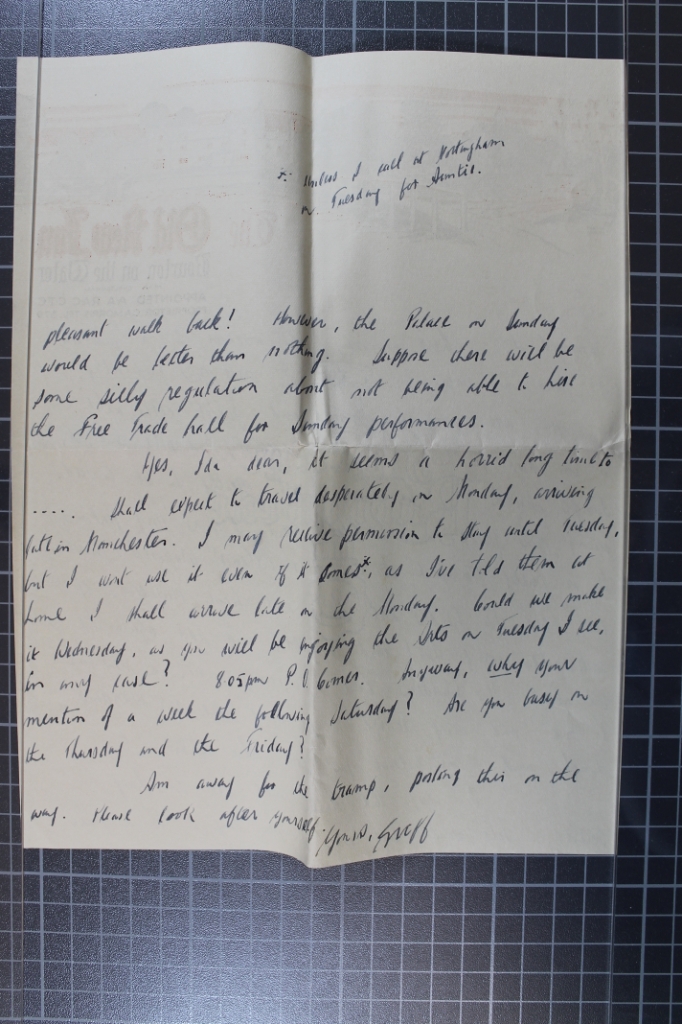 * Unless I call at Nottingham
on Tuesday for Auntie.
pleasant walk back! However, the Palace on Sunday
would be better than nothing. Suppose there will be
some silly regulation about not being able to hire
the Free Trade hall for Sunday performances.
Yes, Ida dear, it seems a horrid long time to
..... Shall expect to travel desperately on Monday, arriving
late in Manchester. I may receive permission to stay until Tuesday,
but I wont use it even if it comes*, as I've told them at
home I shall arrive late on the Monday. Could we make
it Wednesday, as you will be enjoying the Arts on Tuesday I see,
in any case? 8.05pm P.O. Corner. Anyway, why your
mention of a week the following Saturday? Are you busy on
the Thursday and the Friday?
Am away for the tramp, posting this on the
way. Please look after yourself.
Yours, Geoff
The Old New Inn
Bourton on the Water
APPOINTED AA RAC CTC